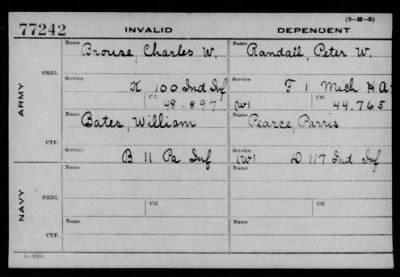 (3-M-3)
77242 INVALID DEPENDENT
Name Brouse, Charles W. Name Randall, Peter W.
ORIG. Service K 100 Ind Inf Service F 1 Mich H A
Ctf. 48.897 (W) Ctf. 44.765
ARMY
Name Bates, William Name Pearce, Parris
CTF. Service B 11 Pa Inf Service (W) D 117 Ind Inf
NAVY
Name Name
ORIG. Service Ctf. Service Ctf.
Name Name
CTF. Service Service